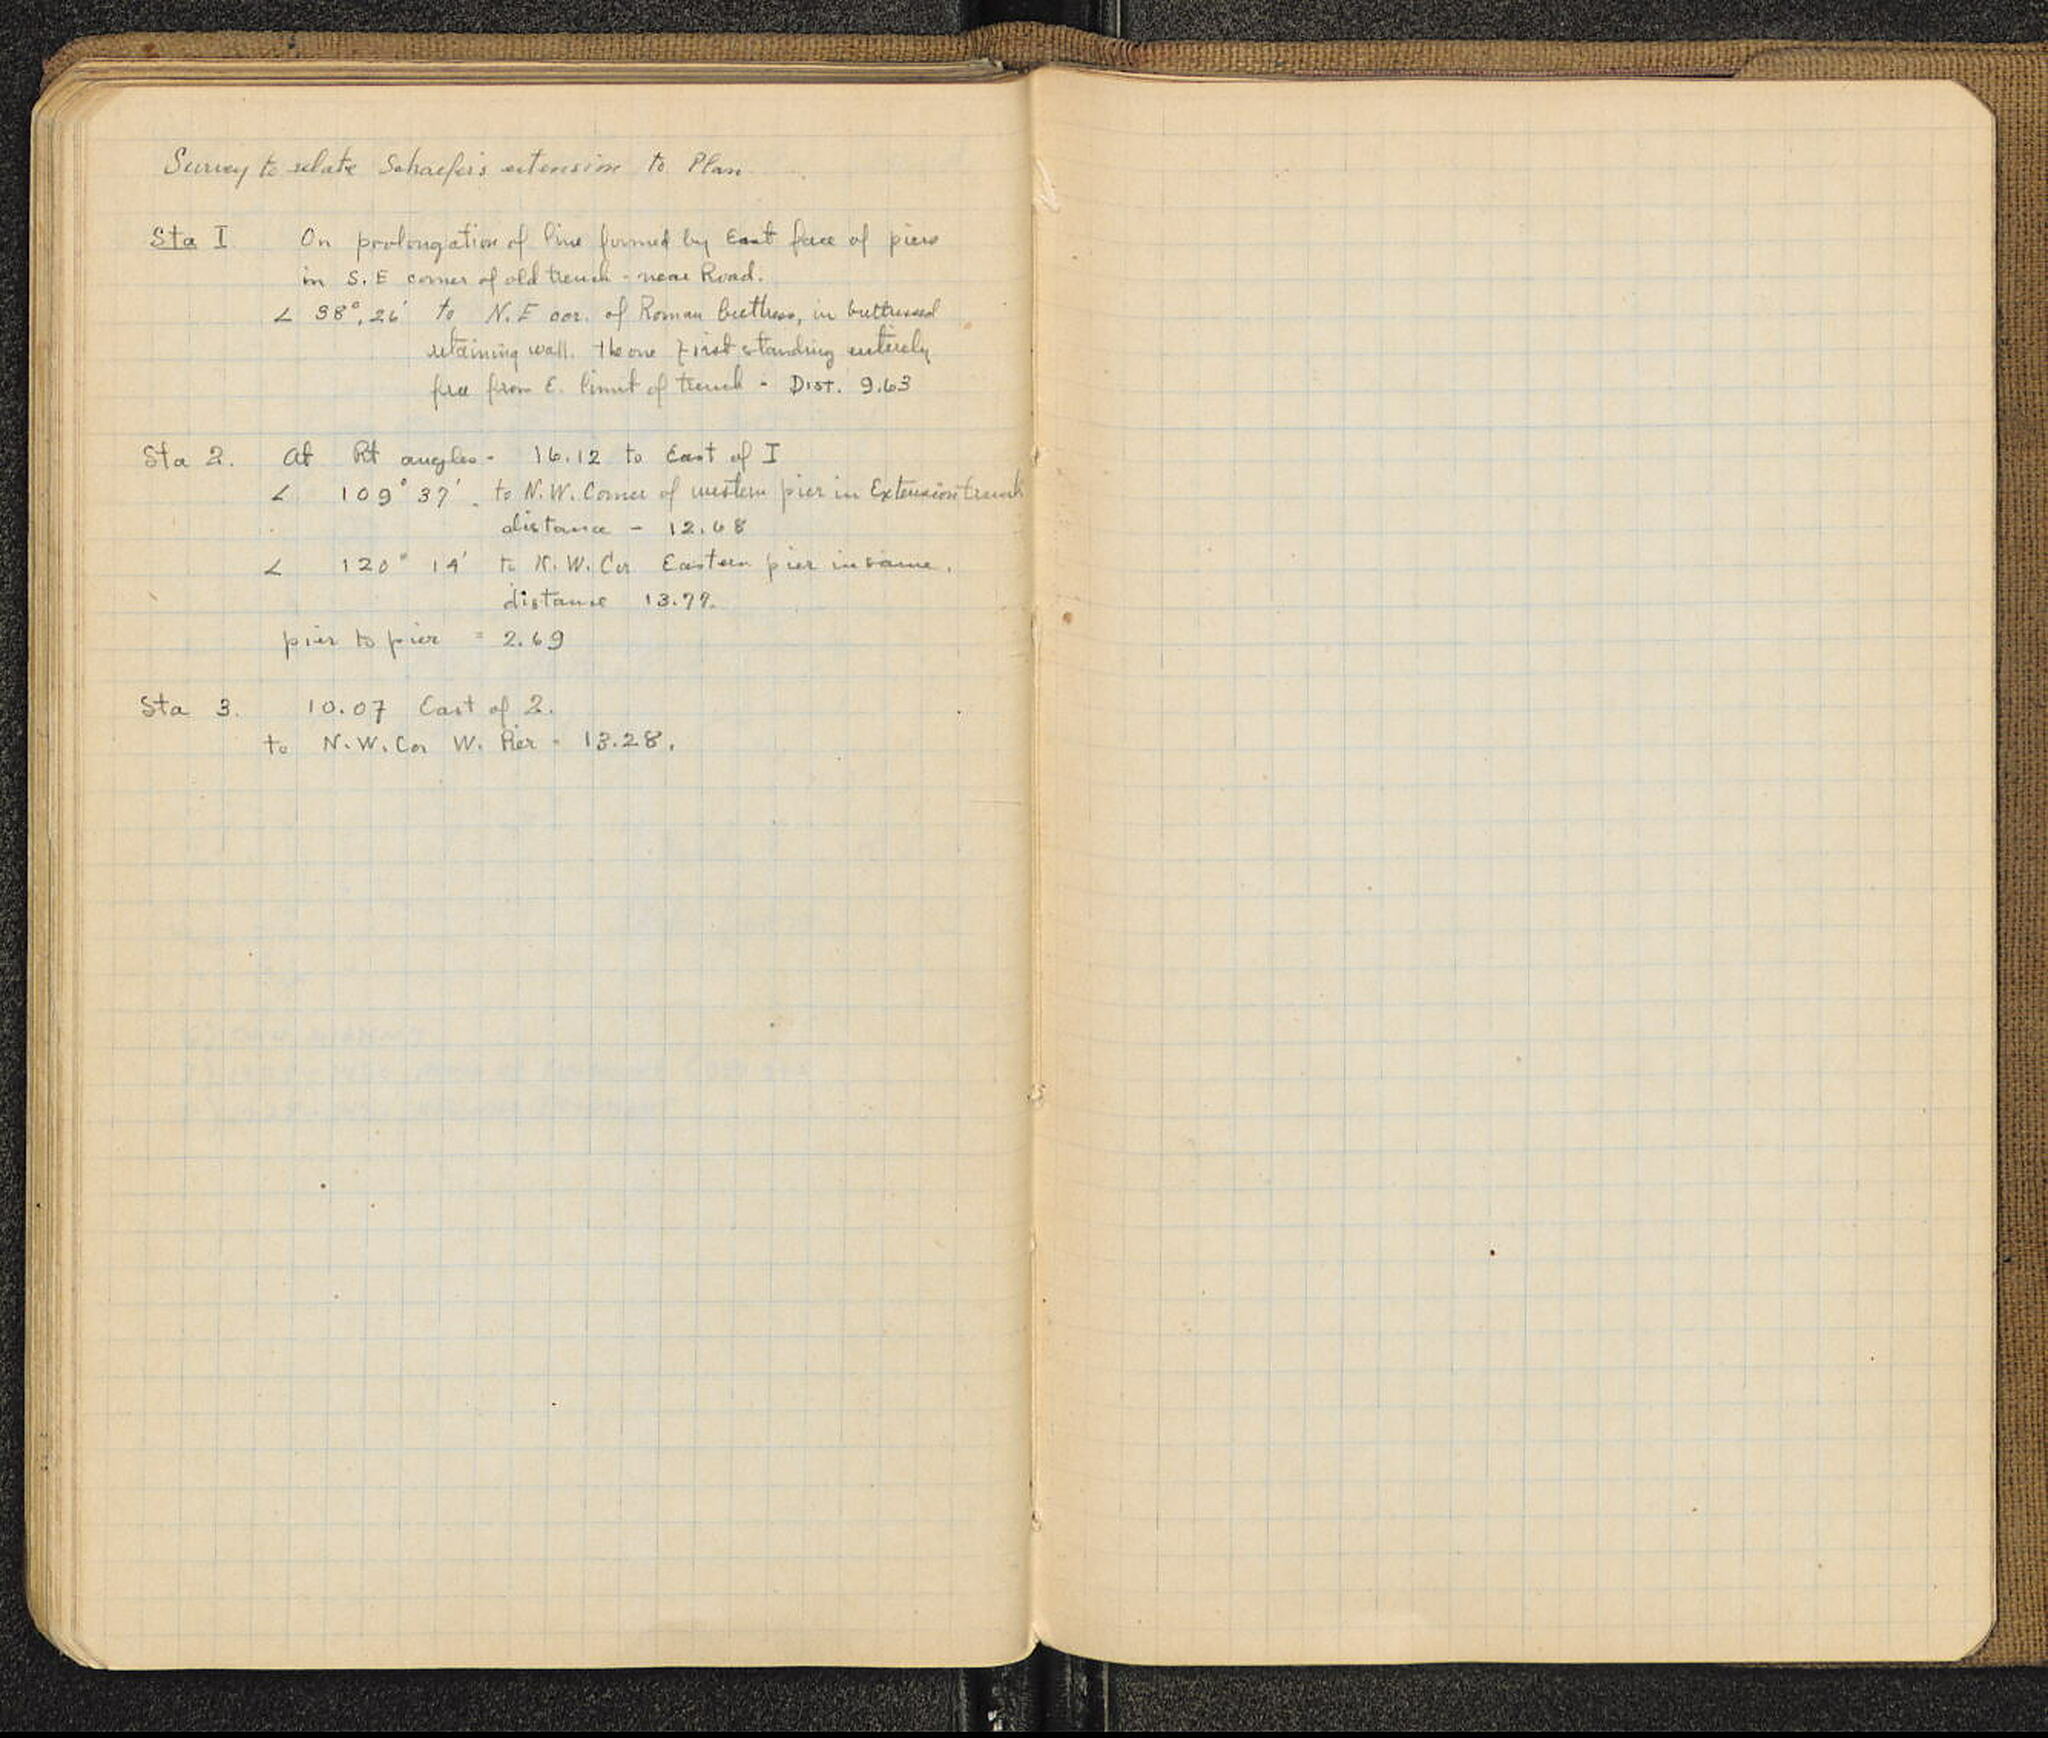 Survey to relate Schaefer's extension to Plan
Sta I On prolongation of line formed by East face of piers
in S.E corner of old trench - near Road.
∠ 38°.26' to N.E cor. of Roman buttress, in buttressed
retaining wall. the one first standing entirely
free from E. limit of trench - Dist. 9.63
Sta 2. At Rt angles - 16.12 to East of I
∠ 109° 37'. to N.W. Corner of western pier in Extension trench
distance - 12.68
∠ 120° 14' to N.W. Cor Eastern pier in same.
distance 13.77.
pier to pier = 2.69
Sta 3. 10.07 East of 2.
to N.W. Cor W. Pier - 13.28.